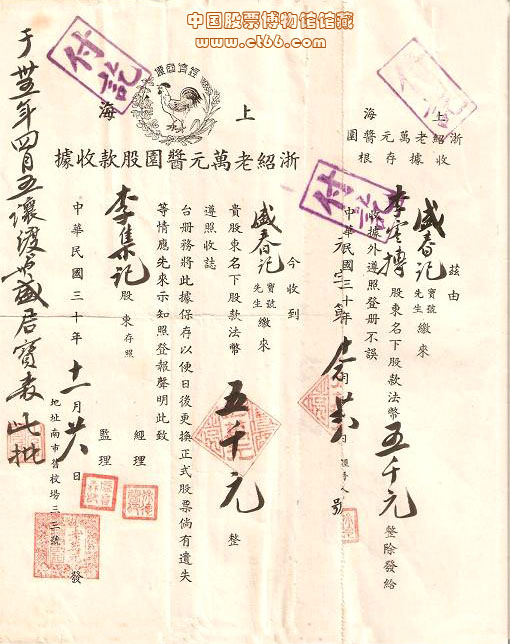 中国股票博物馆馆藏
www.ct66.com
上海
浙紹老萬元醬園
收據存根
茲由
盛春記寶號先生繳來
李
股東名下股款法幣五千元整除發給
收據外遵照登册不誤
中華民國三十年
月
日
號
付訖
付訖
付訖
上海
經濟
浙紹老萬元醬園股款收據
今收到
盛春記寶號先生繳來
貴股東名下股款法幣五千元整
遵照收誌
台册務將此據保存以便日後更換正式股票倘有遺失
等情應先來示知照登報聲明此致
李集記股東存照
經理
監理
中華民國三十年十一月廿八日發
地址南市舊校場三三號
于卅五年四月五
盛君寶
此批